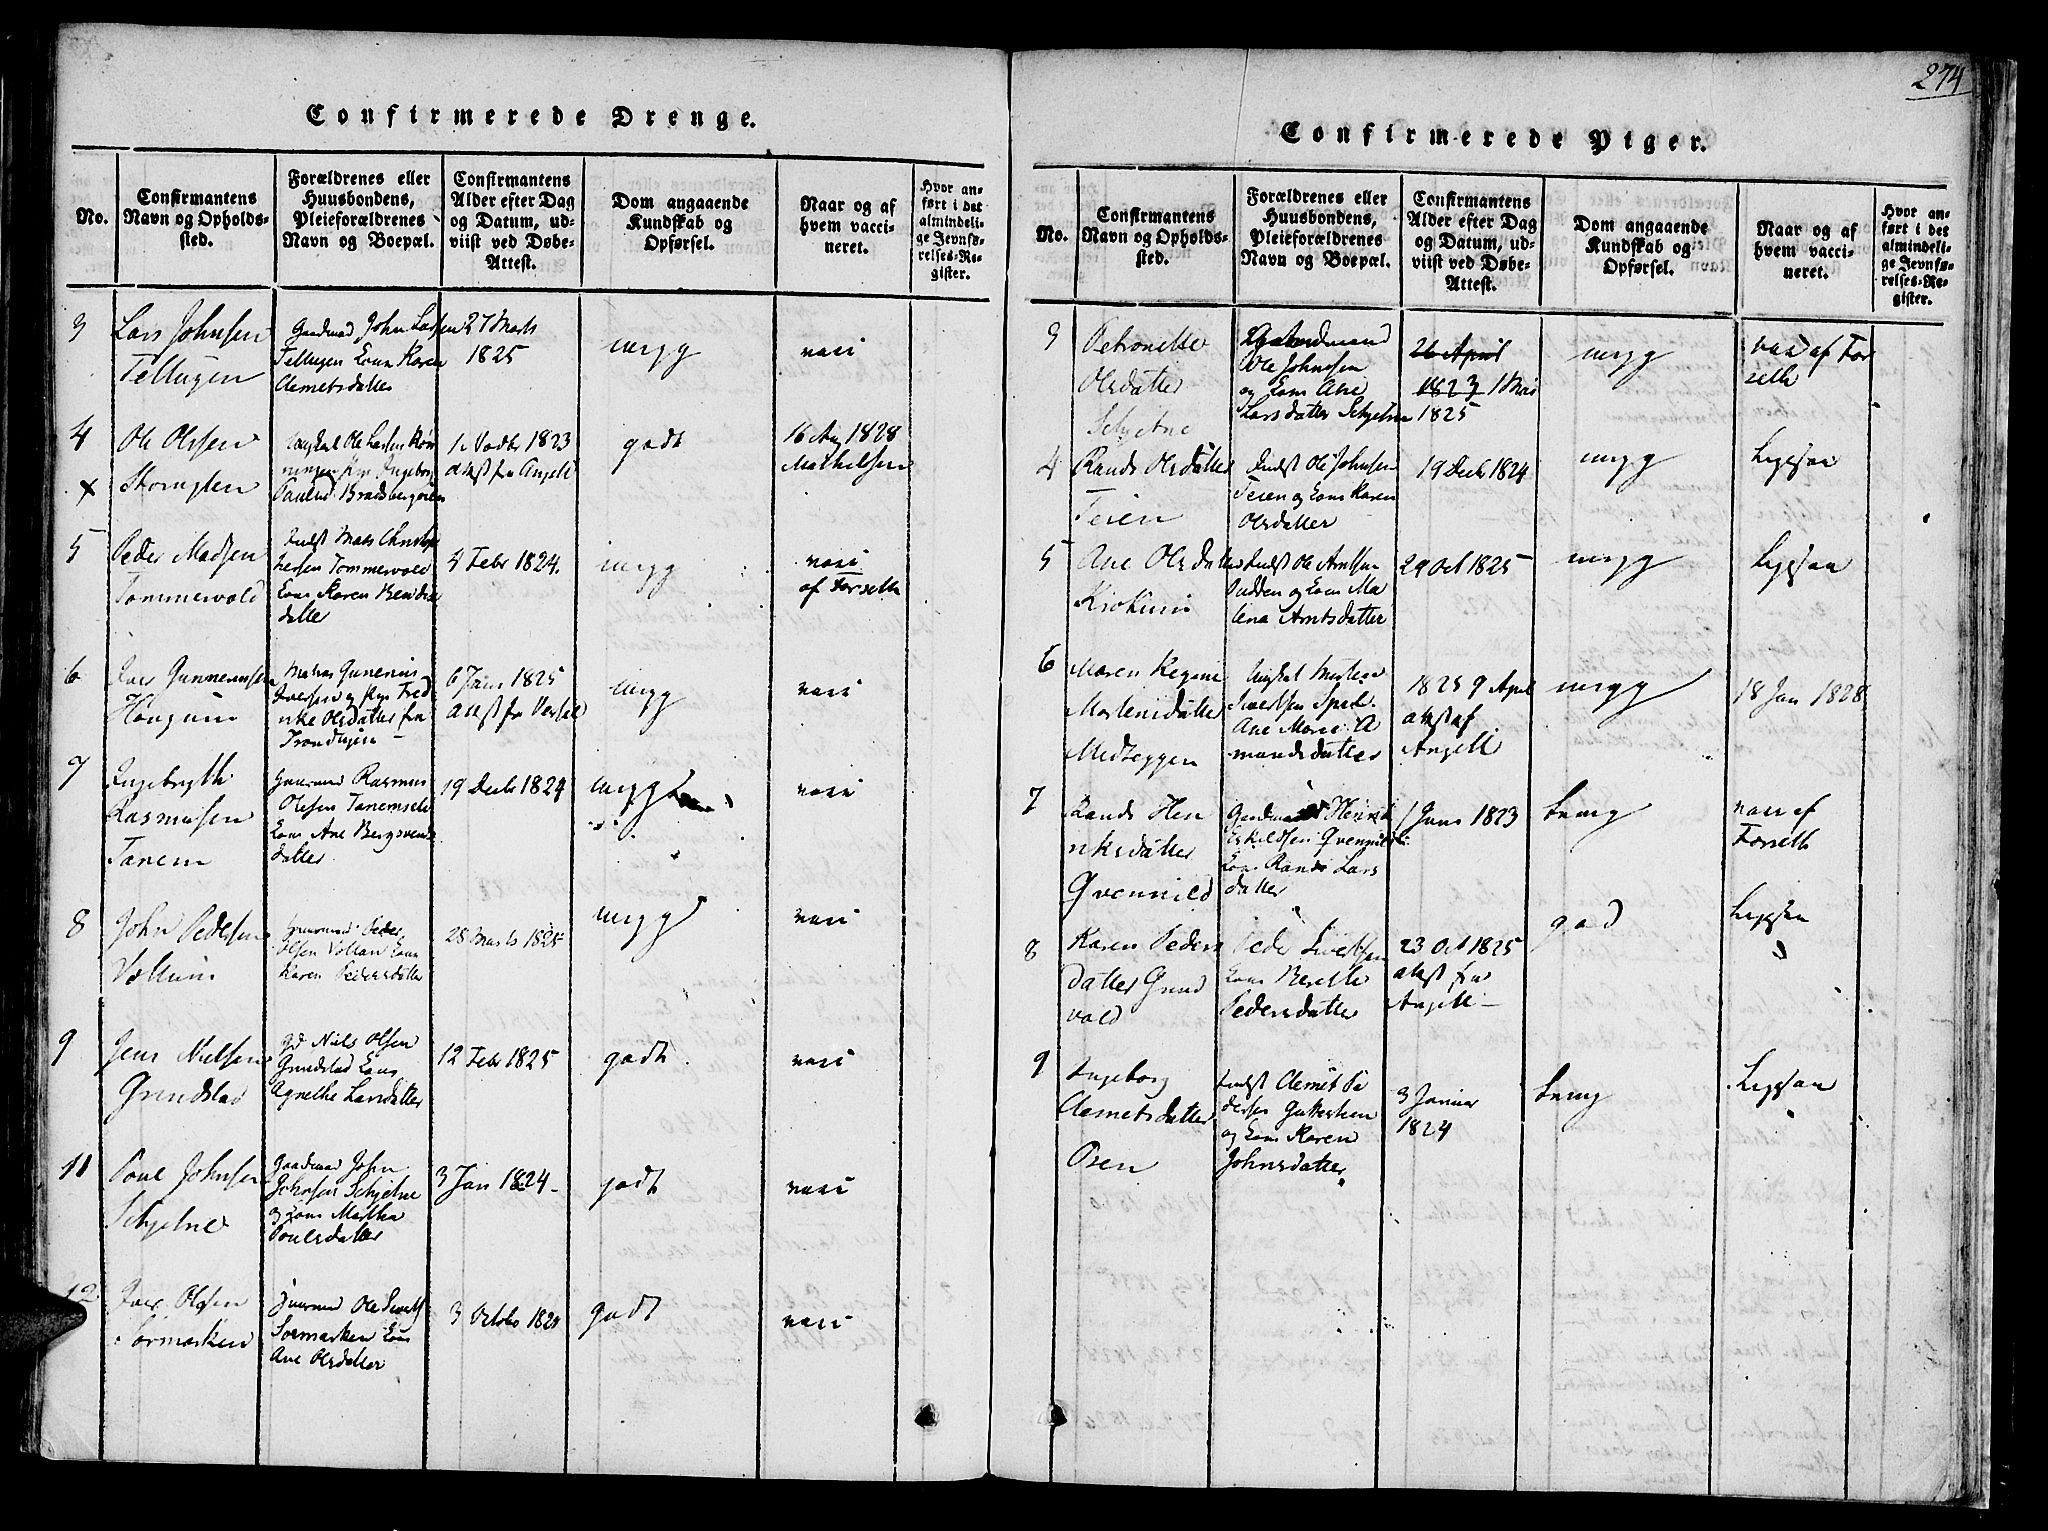 274
Confirmerede Drenge.
No.
Confirmantens
Navn og Opholds-
sted.
Forældrenes eller
Huusbondens,
Pleieforældrenes
Navn og Boepæl.
Confirmantens
Alder efter Dag
og Datum, ud-
viist ved Døbe-
Attest.
Dom angaaende
Kundskab og
Opførsel.
Naar og af
hvem vacci-
neret.
Hvor an-
ført i det
almindeli-
ge Jevnfø-
relses-Re-
gister.
3
Lars Johnsen
Tellugen
Gaardmand John Larsen
Tellugen Kone Karen
Clemetsdatter
27 Marts
1825
meg g
vacc
4
Ole Olssen
Ole Larsen
Ingeborg
1823
attest fra Angell
godt
16 Aug 1828
Mathilsen
5
Peder Madsen
Tommervold
Indst Mads Christop
hersen Tommervold
Kone Karen
datter
4 Febr 1824.
meg g
vacc
af Forseth
6
Iver Gunnerusen
Haugum
Gunerius
Iversen og
Olsdatter fra
Trondhjem
6 Janr 1825
attst fra
meg g
vacc
7
Ingebrygth
Rasmusen
Tanem
Gaarmand Rasmus
Olesen
Kone Ane
datter
19 Decb 1824
meg g
vacc
8
John Pedersen
Voltum
Gaarmand Peder
Olsen Voltan Kone
Karen Pedersdatter
28 Marts 1825
meg g
vacc
9
Jens Nielsen
Grendstad
Gd Niels Olsen
Grendstad Kone
Agnethe Larsdatter
12 Febr 1825
godt
vacc
11
Poul Johnsen
Schjetne
Gaadmand John
Johnsen Schjetne
og Kone Martha
Poulsdatter
3 Jan 1824
godt
vacc
12
Iver Olsen
Sørmarken
Gaarmand Ole
Sørmarken Kone
Ane Olsdatter
3 Octobr
godt
vacc
Confirmerede Piger.
No.
Confirmantens
Navn og Opholds-
sted.
Forældrenes eller
Huusbondens,
Pleieforældrenes
Navn og Boepæl.
Confirmantens
Alder efter Dag
og Datum, ud-
viist ved Døbe-
Attest.
Dom angaaende
Kundskab og
Opførsel.
Naar og af
hvem vacci-
neret.
Hvor an-
ført i det
almindeli-
ge Jevnfø-
relses-Re-
gister.
3
Petronelle
Olsdatter
Schjetne
Gaardmand
Ole Johnsen
og Kone Ane
Larsdatter Schjetne
26 April
1823 1 Mai
1825
meg g
vacc af For
seth
4
Randi Olsdatter
Teien
Indst Ole Johnsen
Teien og Kone Karen
Olsdatter
19 Decb 1824
meg g
Ligesaa
5
Ane Olsdatter
Indst Ole Arntsen
og Kone Ma
lena Arntsdatter
29 Oct 1825
meg g
Ligesaa
6
Maren Regine
Mortensdatter
Medseggen
Ungkal Morten
Sivertsen
Ane Marie A
mundsdatter
1825 9 April
attst af
Angell
meg g
18 Jan 1828
7
Randi Hen
riksdatter
Qvennild
Gaadmand Henrik
Eskildsen Qvennild
Kone Randi Lars
datter
1 Juni 1823
temg
vacc af
Forseth
8
Karen Peders
datter Grund
vold
Peder Sivertsen
Kone Berethe
Pedersdatter
23 Oct 1825
attst fra
Angell
god
Ligesaa
9
Ingeborg
Clemetsdatter
Øsen
Indst Clemet Pe
dersen
og Kone Karen
Johnsdatter
3 Januar
1824
temg
Ligesaa